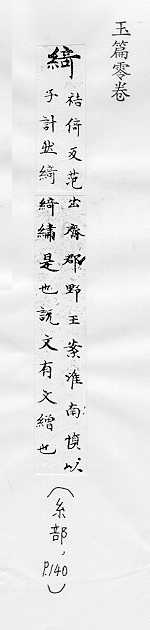 玉篇零卷
綺
祛倚反范出齊郡野王案淮南墳以
子計然綺綺繡是也説文有文繒也
(糸部, P.140)